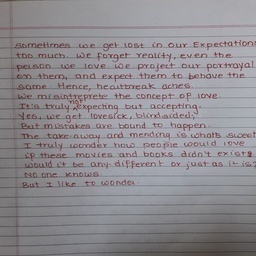 Sometimes we get lost in our Expectations
too much. We forget reality, even the
person we love. We project our portrayal
on them, and expect them to behave the
same. Hence, heartbreak aches.
We misintreprete the concept of love.
It's truly not expecting but accepting.
Yes, we get lovesick, blindsided;
But mistakes are bound to happen.
The take-away and mending is whats sweet
I truly wonder how people would love
if these movies and books didn't exist?
would it be any different or just as it is?
No one knows.
But I like to wonder